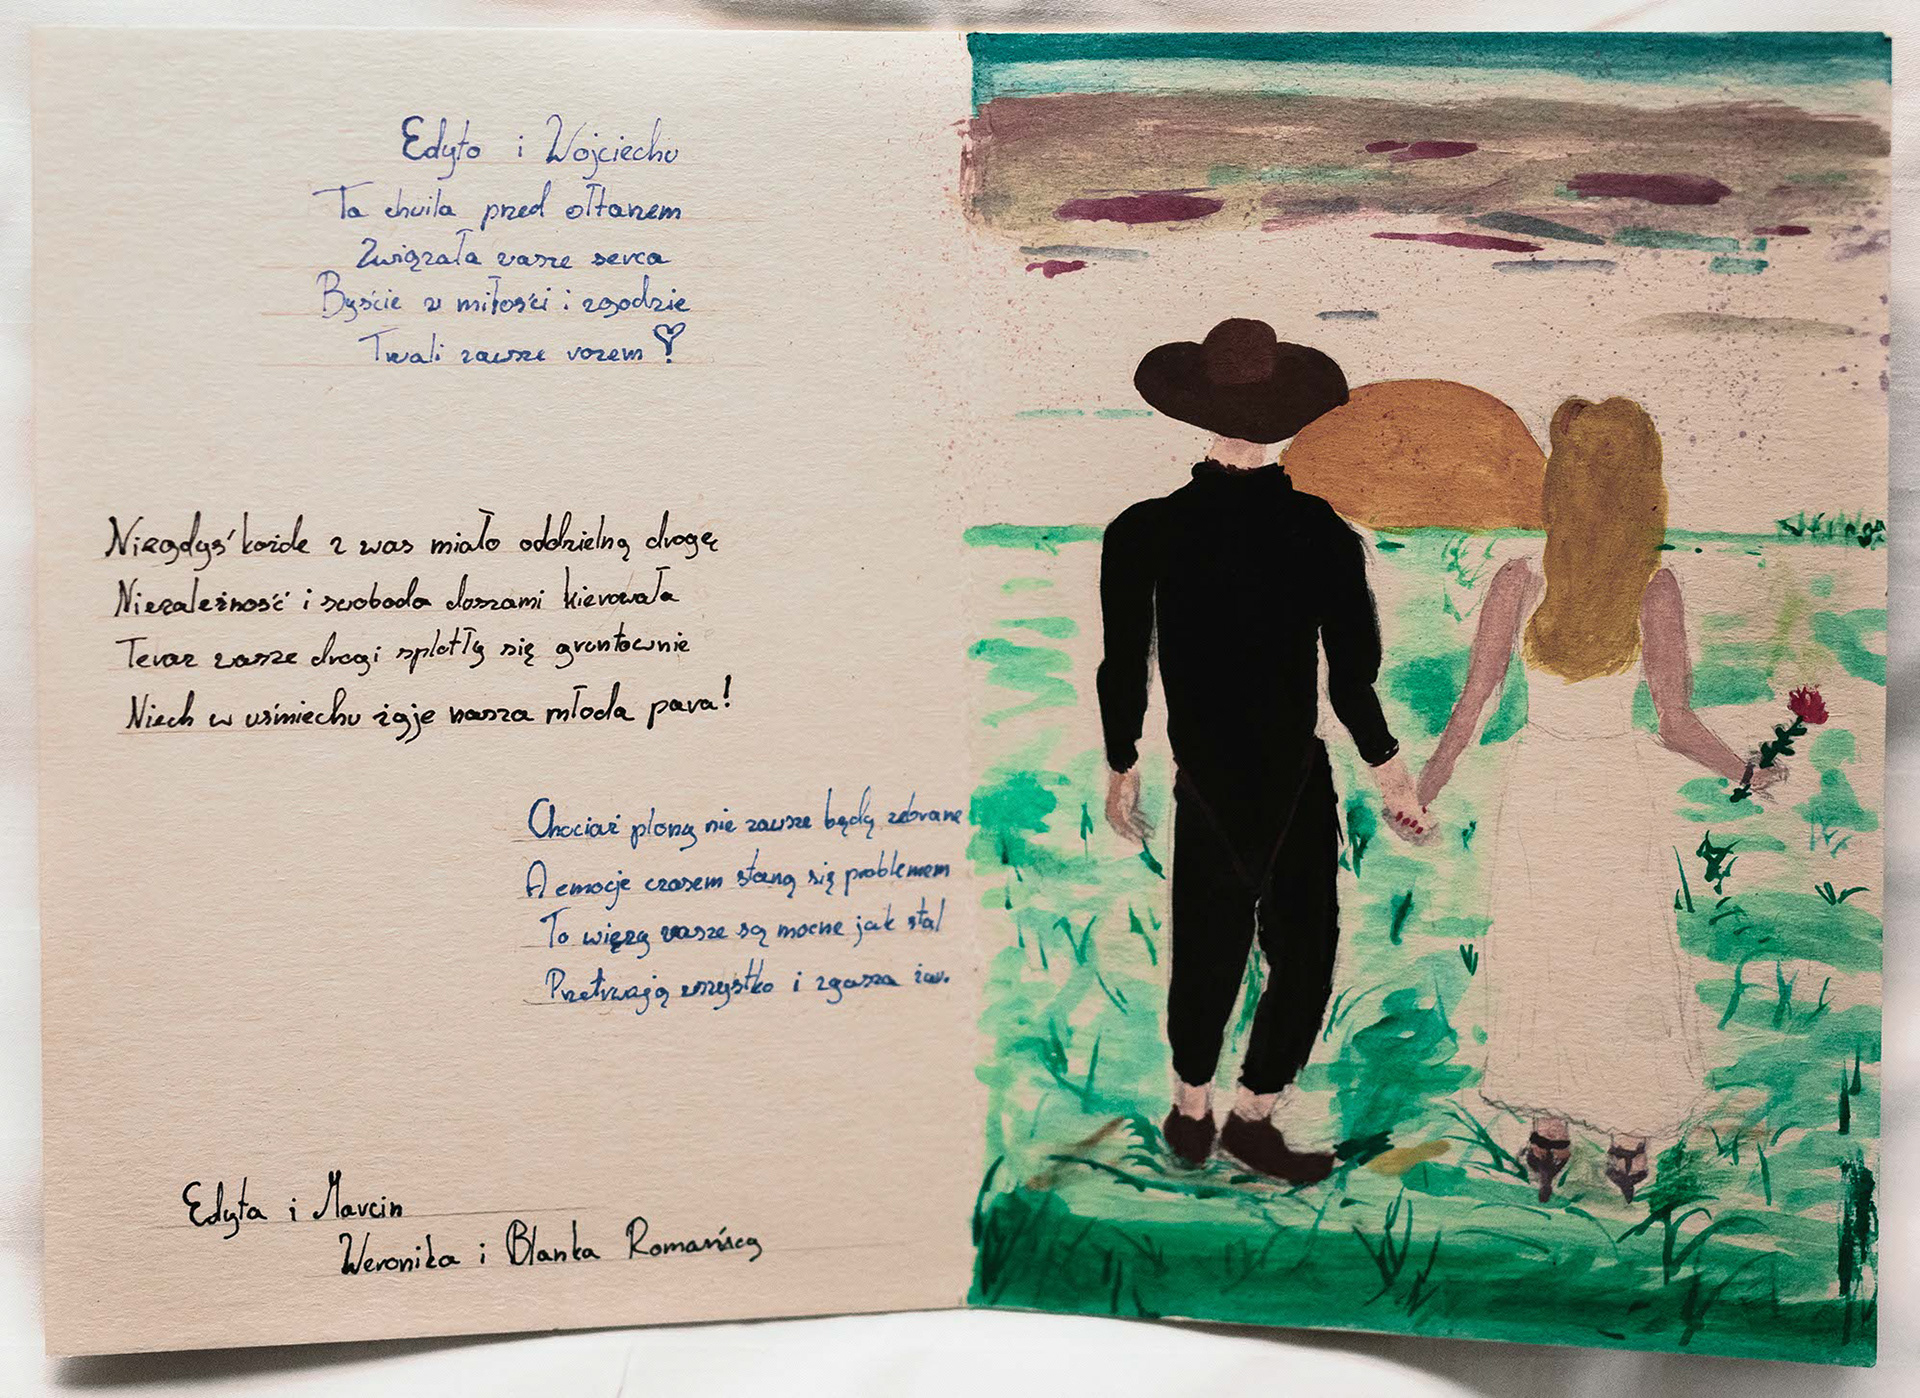 Edyto i Wojciechu
Ta chwila przed ołtarzem
Związała wasze serca
Byście w miłości i zgodzie
Trwali zawsze razem
Niegdyś każde z was miało oddzielną drogę
Niezależność i swoboda duszami kierowała
Teraz wasze drogi splotły się gruntownie
Niech w uśmiechu żyje nasza młoda para!
Chociaż plony nie zawsze będą zebrane
A emocje czasem staną się problemem
To więzy wasze są mocne jak stal
Przetrwają wszystko i zgaszą żar.
Edyta i Marcin
Weronika i Blanka Romańscy